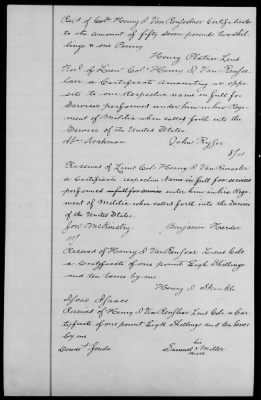 Recd of Colo Henry I Van Renselear Certificates
to the amount of fifty seven pounds two shil-
lings & one Penny
Henry Platner Lieut
Recd of Lieut Colo Henry I Van Renselear
a Certificate amounting as oppo
site to our Respective names in full for
Services performed under him in his Regi-
ment of Militia when called forth into the
Service of the United States
John
Received of Lieut Col. Henry I Van Renseler
a Certificate respective Name in full for services
performed in full for service under him in his Regi-
ment of Militia when called forth into the Service
of the United States.
Jon McKinstry Benjamin
Received of Henry I Van Renselear Lieut Colo
a Certificate of one pound Eigh Shillings
and ten pence by me
Henry I
Isaac
Received of Henry I Van Renselear Lieut Colo a Cer-
tificate of one pound Eigth Shillings and ten pence
by me
his
Samuel x Miller
mark